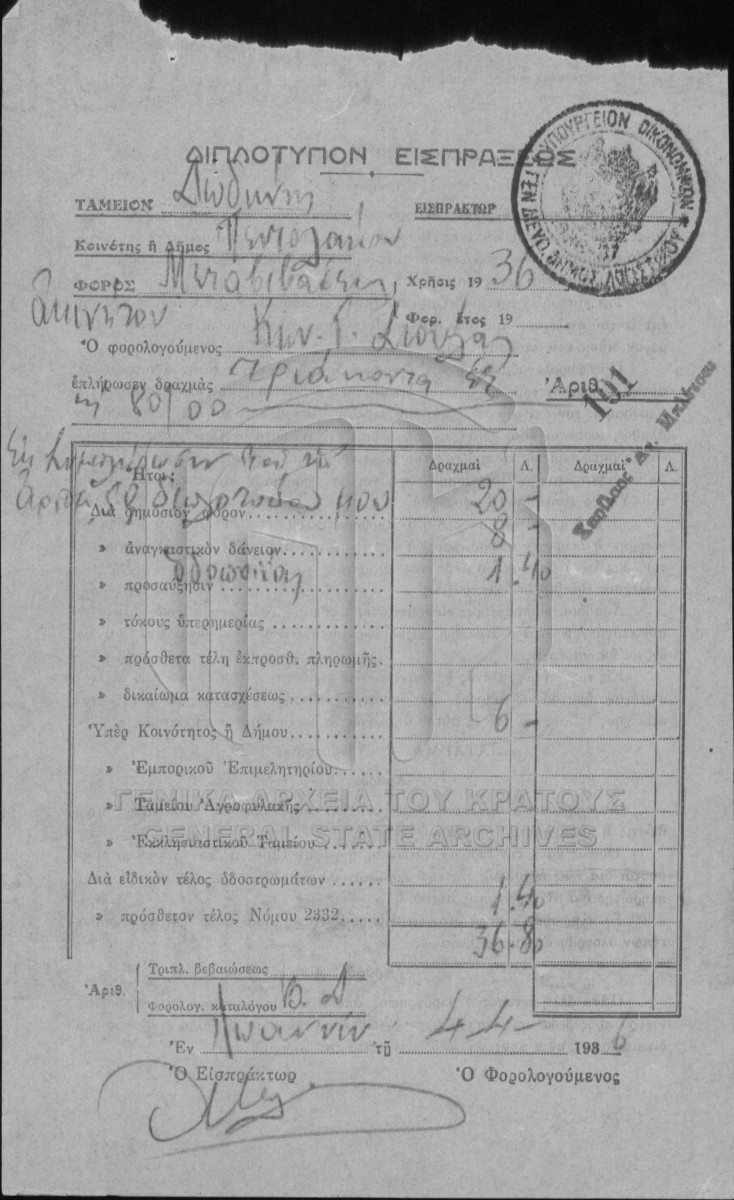 ΥΠΟΥΡΓΕΙΟΝ ΟΙΚΟΝΟΜΙΚΩΝ
ΓΕΝ. ΔΙΕΥΘ. ΔΗΜΟΣ. ΛΟΓΙΣΤΙΚΟΥ
37
ΔΙΠΛΟΤΥΠΟΝ ΕΙΣΠΡΑΞΕΩΣ
ΤΑΜΕΙΟΝ Δωδώνης ΕΙΣΠΡΑΚΤΩΡ
Κοινότης ἢ Δῆμος
ΦΟΡΟΣ Μεταβιβάσεως Χρῆσις 1936
ἀκινήτου
Φορ. ἔτος 19
Ὁ φορολογούμενος Κων. Γ. Σιούλας
ἐπλήρωσεν δραχμὰς τριάκοντα ἓξ Ἀριθ. 191
80/00
Εἰς τοῦ
Ἤτοι: Δραχμαὶ Λ. Δραχμαὶ Λ.
Διὰ δημόσιον φόρον 20 -
» ἀναγκαστικὸν δάνειον 8 -
» προσαύξησιν 1.40
» τόκους ὑπερημερίας
» πρόσθετα τέλη ἐκπροσθ. πληρωμῆς.
» δικαίωμα κατασχέσεως
Ὑπὲρ Κοινότητος ἢ Δήμου 6 -
» Ἐμπορικοῦ Ἐπιμελητηρίου
» Ταμείου Ἀγροφυλακῆς
ΓΕΝΙΚΑ ΑΡΧΕΙΑ ΤΟΥ ΚΡΑΤΟΥΣ
GENERAL STATE ARCHIVES
» Ἐκκλησιαστικοῦ Ταμείου
Διὰ εἰδικὸν τέλος ὁδοστρωμάτων
» πρόσθετον τέλος Νόμου 2332 1.40
36.80
Ἀριθ. Τριπλ. βεβαιώσεως
Φορολογ. καταλόγου Β. Δ
Ἐν τῇ 4-4- 1936
Ὁ Εἰσπράκτωρ Ὁ Φορολογούμενος